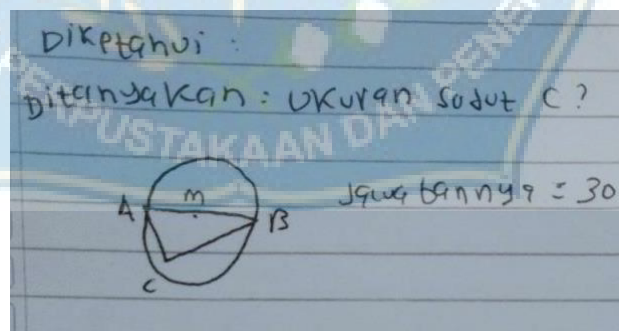 Diketahui :
Ditanyakan : Ukuran sudut C?
PERPUSTAKAAN DAN PENE
A
m
B
C
Jawabannya = 30